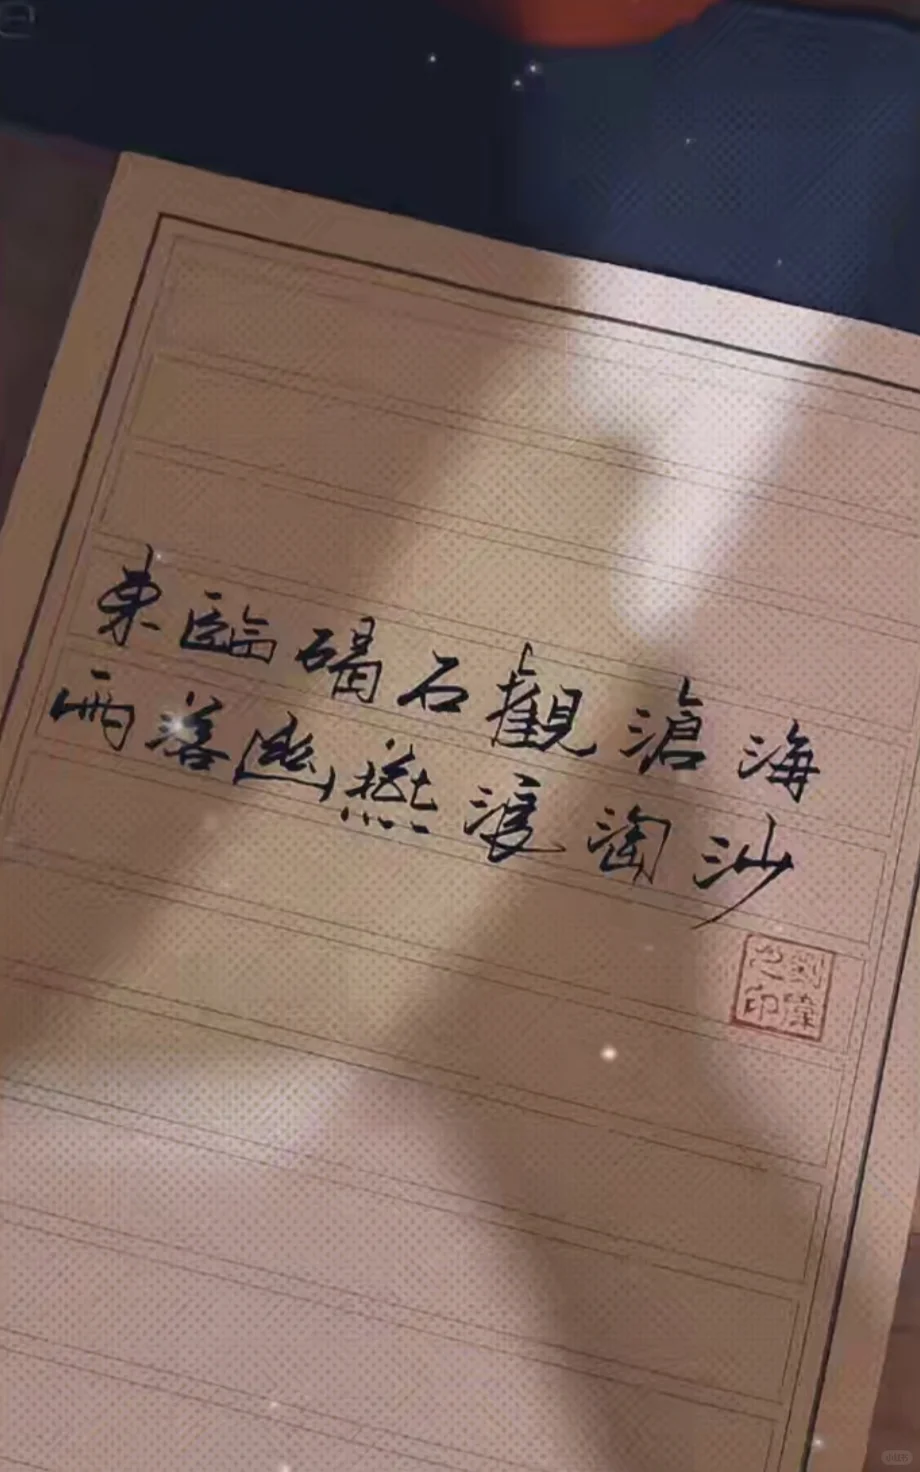 東臨碣石觀滄海
雨落幽燕浪淘沙
劉偉之印